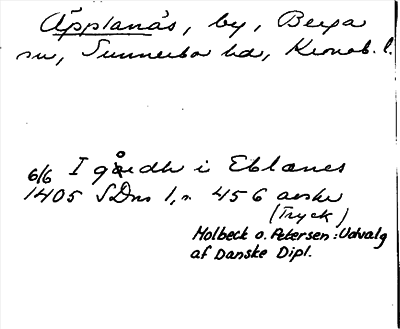 Äpplanäs, by, Berga
sn, Sunnerbo hd, Kronob. l.
6/6 I gårdh i Eblanes
1405 SDns 1, n. 456 avskr
(Tryck)
Molbeck o. Petersen: Udvalg
af Danske Dipl.